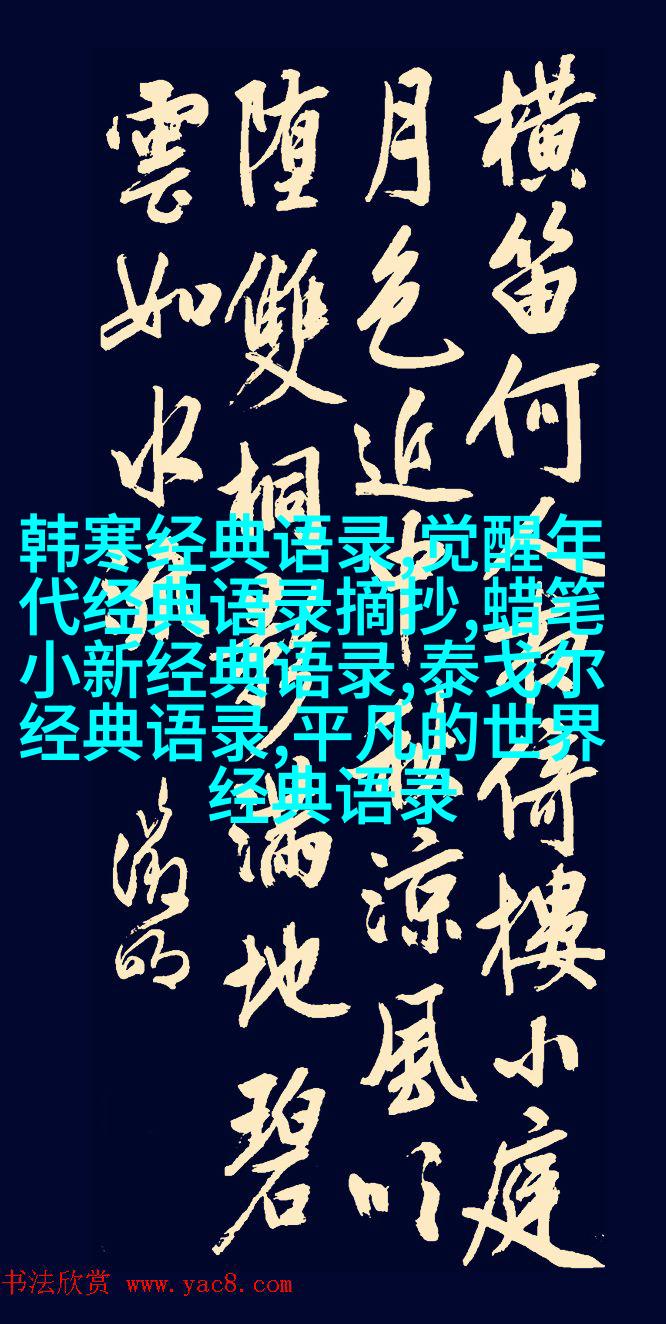 横笛何人倚樓小庭
月色近中秋涼風吹
堕雙桐影滿地碧
雲如水流
徵明
韩寒经典语录,觉醒年
代经典语录摘抄,蜡笔
小新经典语录,泰戈尔
经典语录,平凡的世界
经典语录
书法欣赏 www.yac8.com